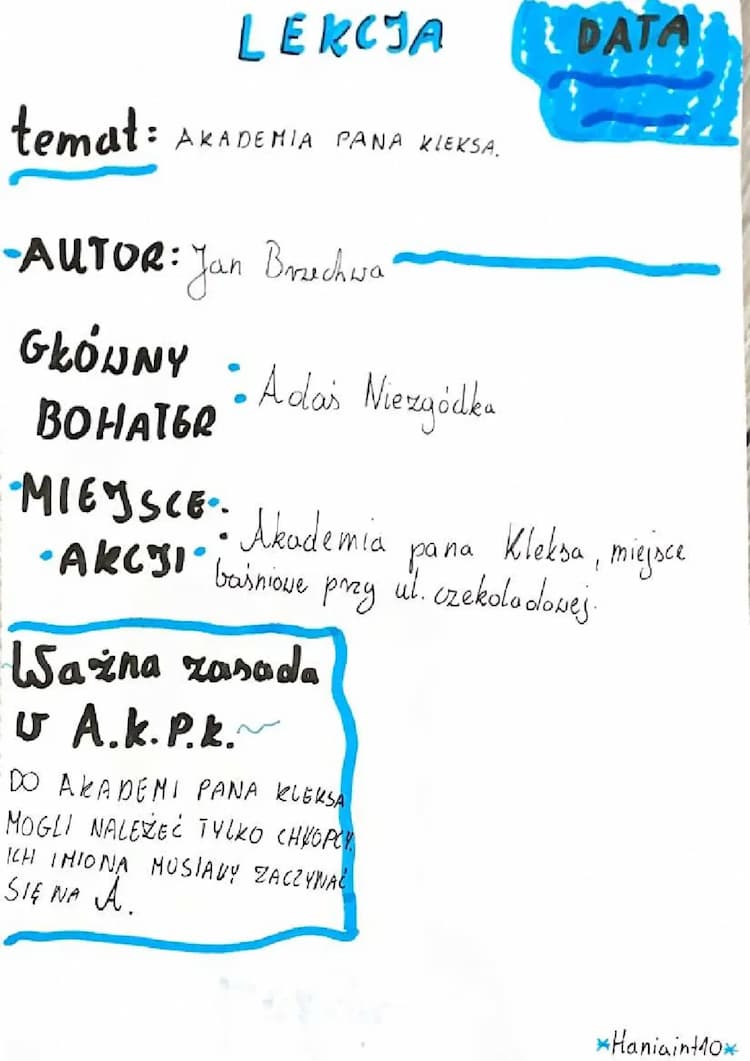 LEKCJA
DATA
temat: AKADEMIA PANA KLEKSA.
AUTOR: Jan Brzechwa
GŁÓWNY
BOHATER : Adaś Niezgódka
MIEJSCE
AKCJI : Akademia pana Kleksa, miejsce
baśniowe przy ul. czekoladowej.
Ważna zasada
w A.k.P.k.
DO AKADEMI PANA KLEKSA
MOGLI NALEŻEĆ TYLKO CHŁOPCY.
ICH IMIONA MUSIAŁY ZACZYNAĆ
SIĘ NA A.
*Haniaint10*